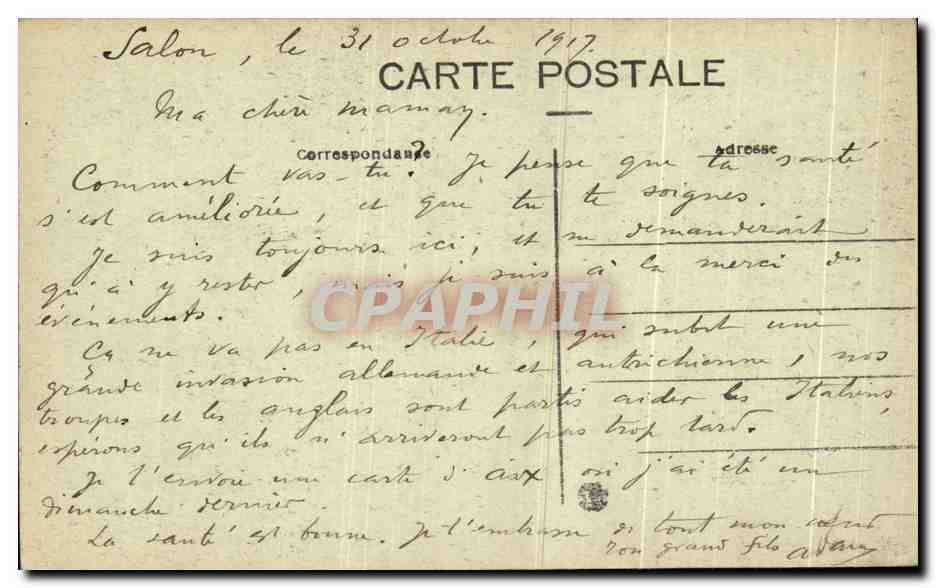 Salon, le 31 octobre 1917.
CARTE POSTALE
Ma chère maman.
Correspondance
Adresse
Comment vas-tu? Je pense que ta santé
s'est améliorée, et que tu te soignes.
Je suis toujours ici, et ne demanderait
qu'à y rester, mais je suis à la merci des
événements.
Ça ne va pas en Italie, qui subit une
grande invasion allemande et autrichienne, nos
troupes et les anglais sont partis aider les Italiens,
espérons qu'ils n'arriveront pas trop tard.
Je t'envoie une carte d'Aix où j'ai été un
dimanche dernier.
La santé est bonne. Je t'embrasse de tout mon cœur
Ton grand fils
CPAPHIL